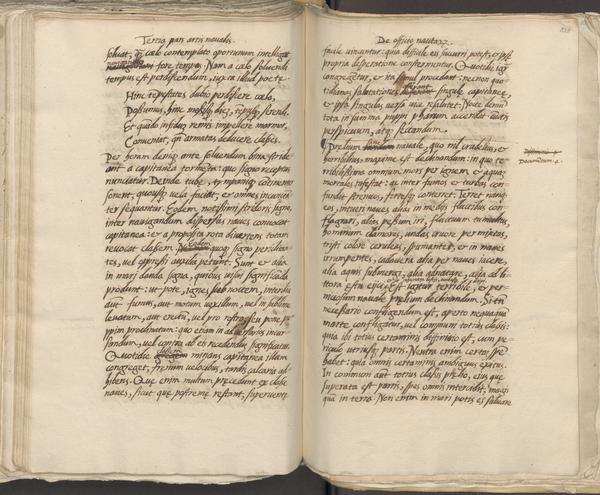 Tertia pars artis navalis.
soluat, et coelo contemplato oportunum intelligat
fore tempus. Nam a calo soluendi
tempus est perdiscendum, iuxta illud poetę
Hinc tempestates dubio perdiscere cœlo,
Possumus, hinc messisq; diem, tempusq; serendi.
Et quando infidum remis impellere marmor,
Conueniat, quando armatas deducere classes.
Per horam demum ante soluendum
aut a capitanea tormento: quo signo recessus
nunciatur. Deinde tubę, et tympaniq; concrepent
sonent, quousq; vela faciat, et omnes
ter sequantur. Eodem
inter nauigandum dispersas naues conuocat
capitanea: et a proposita rota divertens totam
reuocat classem. Eodem quoq; signo periclitantes,
vel oppressi auxilia petunt. Sunt et alia
in mari danda signa, quibus ipsis significanda
produnt: ut pote, ignes sub noctem, interdiu
aut fumus, aut motum vexillum, vel in sublime
leuatum, aut erectum, vel pro
ppim proclinatum: quo etiam in adversarios incursandum,
vel contra ab eis recedendum, significatur.
Quotidie classem minans capitanea illam
congreget, frenum velocibus, tardis calcaria adhibens.
Que enim multum precedunt ex classe
naues, sicut que postreme restant, superuenienti
De officio nautarum.
facile vincuntur: quia difficile eis succurri potest, et ipsę
propria desperatione consternentur. Quotidie igitur
congregetur, et ita simul procedant: necnon quotidianas
salutationes singulę capitaneę,
et ipsa singulis versa vice resalutet. Nocte demum
tota in summa puppi pharum accendat
perspicuum, atq; secandum.
Prelium navale, quo nil crudelius, et
horribilius, maxime est declinandum: in quo terribilissima
omnium mors per ignem et aquas
mortales infestat: aer inter fumos et turbas confundit
strenuos, fortesq; conterret. Terret nautas
eos, intueri naues alias in medijs fluctibus conflagrari,
alias pessum iri, fluctuum tumultus,
hominum clamores, undas cruore permixtas,
tristi colore ceruleas, spumantes, et in naues
irrumpentes, cadauera alia per naues iacere,
alia aquis submergi, alia adnatare, alia ad littora
Est igitur terribile, et permaximum
nauale prelium declinandum. Si tamen
necessario confligendum est, aperto nequaquam
marte confligatur, vel communi totius classis:
quia ibi totius certaminis diffinitio est, cum periculo
utriusq; partis. Neutra enim certam spem
habet: quia omnis certaminis ambiguus exitus.
In communi aut totius classis prelio, eius que
superata est partis, spes omnis intercidit, magis
quam in terra. Non enim in mari potis es saluare
Documentum 4.